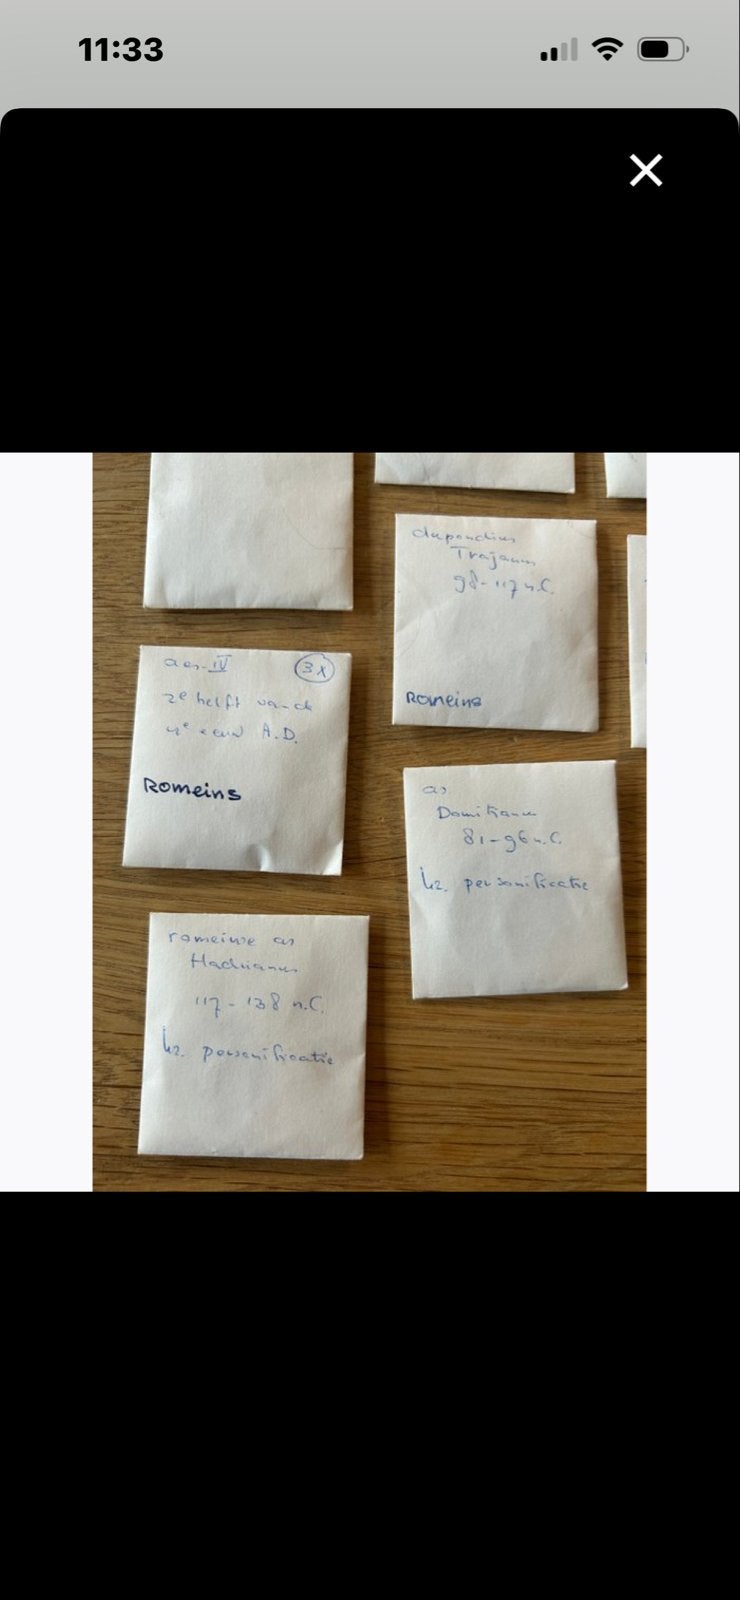 11:33
dupondius
Trajanus
98-117 n.C.
Romeins
aes-IV 3x
2e helft van de
4e eeuw A.D.
Romeins
as
Domitianus
81-96 n.C.
kz. personificatie
romeinse as
Hadrianus
117-138 n.C.
kz. personificatie